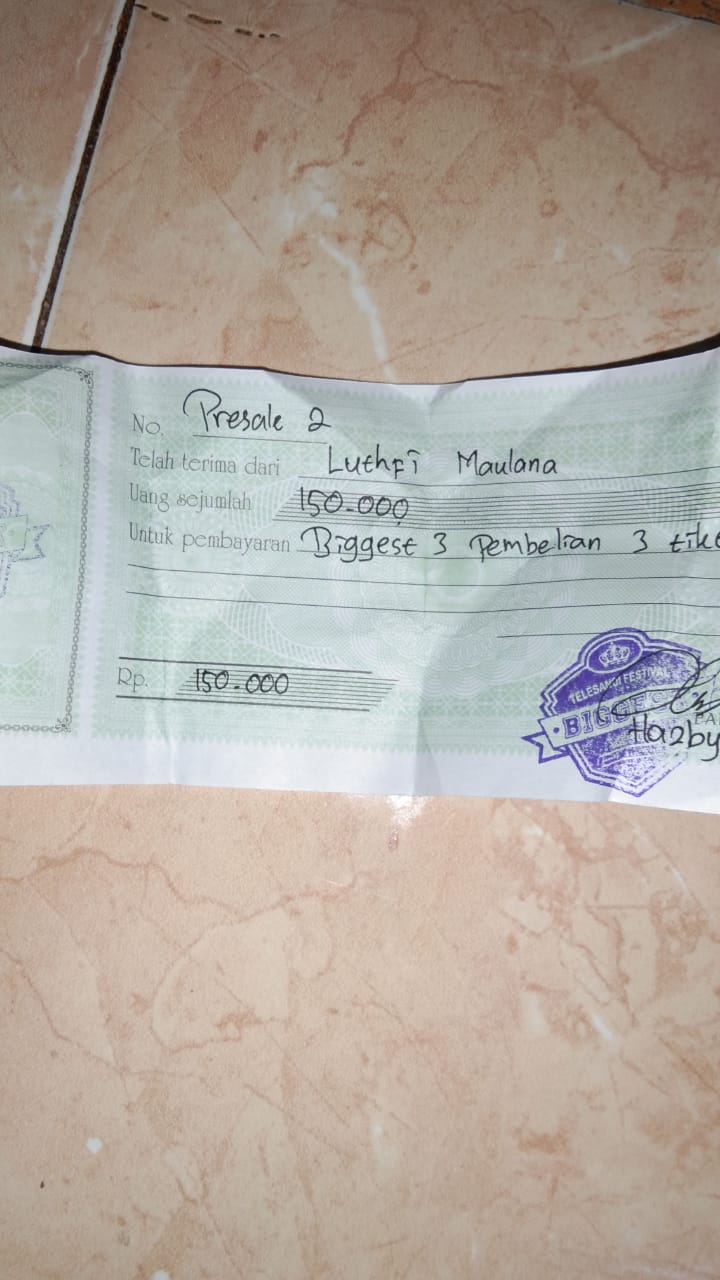 No. Presale 2
Telah terima dari Luthfi Maulana
Uang sejumlah 150.000
Untuk pembayaran Biggest 3 Pembelian 3 tike
Rp. 150.000
TELESANDI FESTIVAL
BIGGEST
Hazby